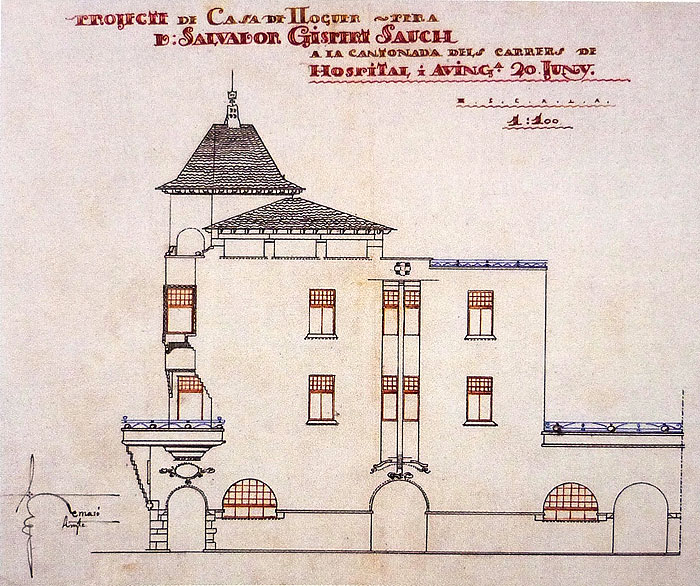 PROJECTE DE CASA DE LLOGUER PERA
D: SALVADOR GISPERT SAUCH
A LA CANTONADA DELS CARRERS DE
HOSPITAL i AVINGᴬ 20. JUNY.
E.S.C.A.L.A.
1:100
Arqte